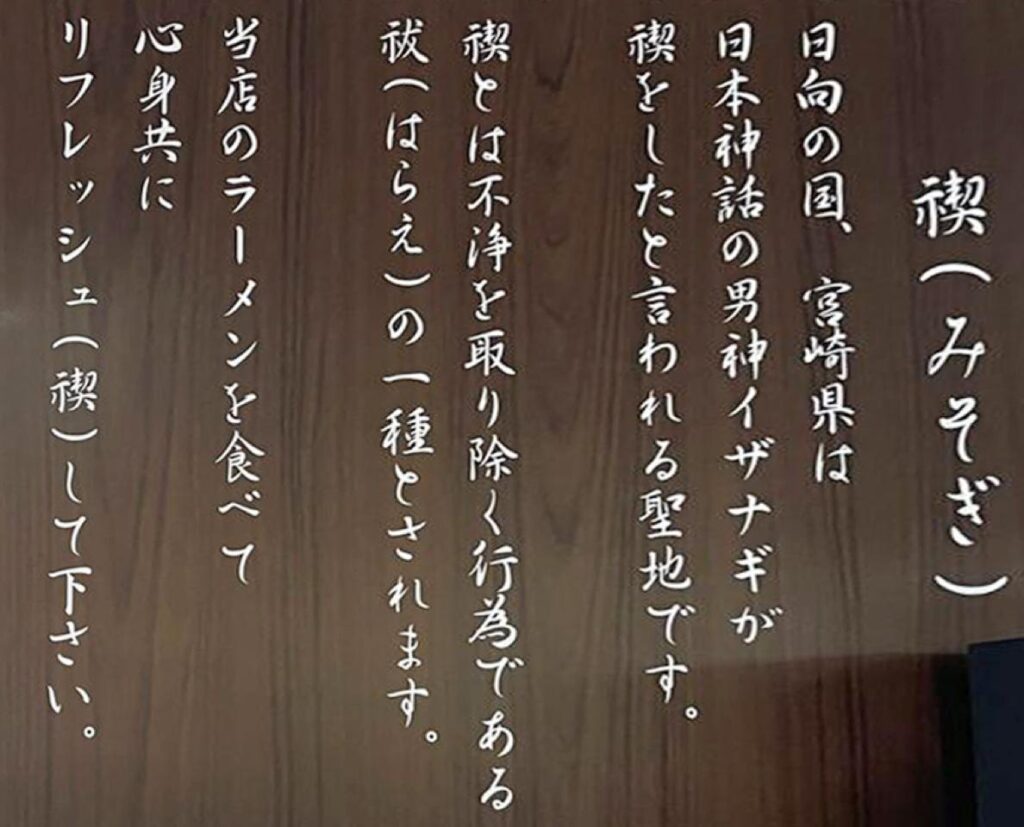 禊(みそぎ)
日向の国、宮崎県は
日本神話の男神イザナギが
禊をしたと言われる聖地です。
禊とは不浄を取り除く行為である
祓(はらえ)の一種とされます。
当店のラーメンを食べて
心身共に
リフレッシュ(禊)して下さい。